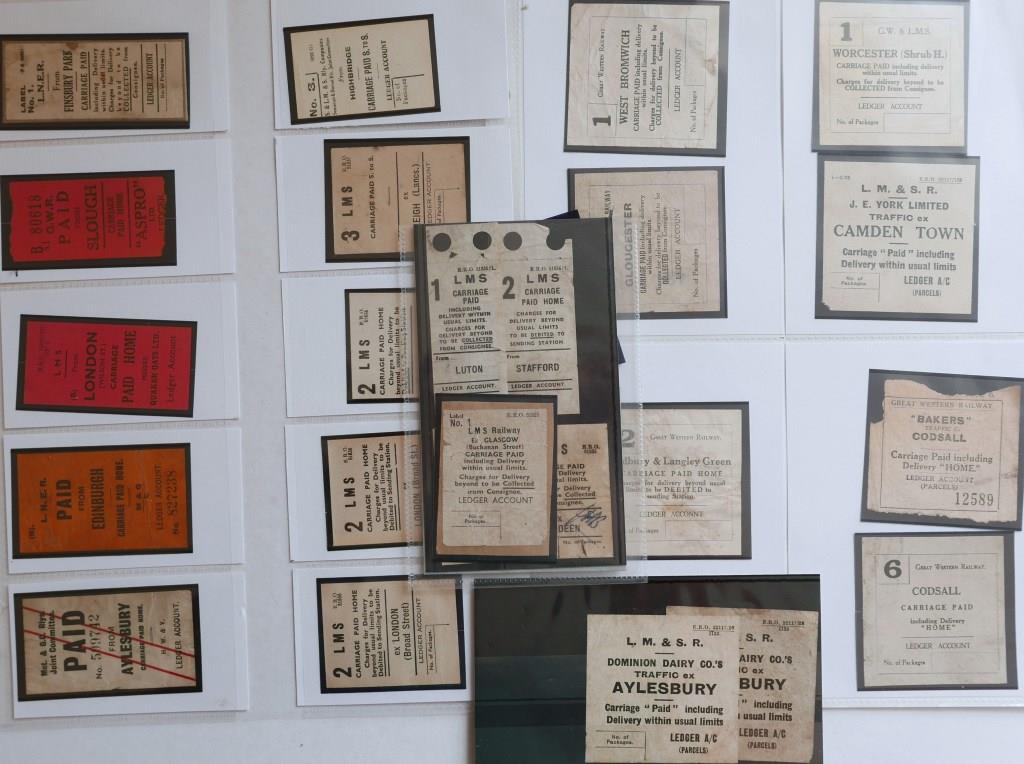 LABEL
No. 1.
L.N.E.R.
From
FINSBURY PARK
CARRIAGE PAID
including Delivery
within usual limits.
beyond to be
COLLECTED from
Consignee.
LEDGER ACCOUNT
No. of
Packages
B 80618
G.W.R.
PAID
FROM
SLOUGH
CARRIAGE
PAID HOME
"ASPRO"
LTD
SLOUGH
L M S
From
LONDON
CARRIAGE
PAID HOME
QUAKER OATS LTD.
Ledger Account
L.N.E.R.
PAID
FROM
EDINBURGH
CARRIAGE PAID HOME.
M & C
LEDGER ACCOUNT
No. 827238
Met. & G.C. Rlys.
Joint Committee.
PAID
No. 519742
FROM
AYLESBURY
CARRIAGE PAID HOME.
H. W. & V.
LEDGER ACCOUNT.
No. 3.
From
HIGHBRIDGE
CARRIAGE PAID S. to S.
LEDGER ACCOUNT
No. of
Packages
3 LMS
CARRIAGE PAID S. to S.
ex
LEIGH (Lancs.)
LEDGER ACCOUNT
No. of
Packages
2 LMS
CARRIAGE PAID HOME
Charges for Delivery
beyond usual limits to be
2 LMS
CARRIAGE PAID HOME
Charges for Delivery
beyond usual limits to be
Debited to Sending Station.
LONDON (Broad St.)
2 LMS
CARRIAGE PAID HOME
Charges for Delivery
beyond usual limits to be
Debited to Sending Station.
ex LONDON
(Broad Street)
LEDGER ACCOUNT
No. of
Packages.
1
LMS
CARRIAGE
PAID
INCLUDING
DELIVERY WITHIN
USUAL LIMITS.
CHARGES FOR
DELIVERY BEYOND
TO BE COLLECTED
FROM CONSIGNEE.
From
LUTON
LEDGER ACCOUNT.
2
LMS
CARRIAGE
PAID HOME
CHARGES FOR
DELIVERY BEYOND
USUAL LIMITS
TO BE DEBITED TO
SENDING STATION
From
STAFFORD
LEDGER ACCOUNT.
Label
No. 1
L M S Railway
Ex GLASGOW
(Buchanan Street)
CARRIAGE PAID
including Delivery
within usual limits.
Charges for Delivery
beyond to be Collected
from Consignee.
LEDGER ACCOUNT
No. of
Packages
DEEN
No. of Packages
1
Great Western Railway.
WEST BROMWICH
CARRIAGE PAID including delivery
within usual limits.
Charges for delivery beyond to be
COLLECTED from Consignee.
LEDGER ACCOUNT
No. of Packages
RAILWAY
GLOUCESTER
CARRIAGE PAID including delivery
within usual limits.
Charges for delivery beyond to be
COLLECTED from Consignee.
LEDGER ACCOUNT
No. of Packages
2
Great Western Railway.
dbury & Langley Green
CARRIAGE PAID HOME
for delivery beyond usual
to be DEBITED to
sending Station.
LEDGER ACCONNT
Packages
1
G.W. & L.M.S.
WORCESTER (Shrub H.)
CARRIAGE PAID including delivery
within usual limits.
Charges for delivery beyond to be
COLLECTED from Consignee.
LEDGER ACCOUNT
No. of Packages
L. M. & S. R.
J. E. YORK LIMITED
TRAFFIC ex
CAMDEN TOWN
Carriage "Paid" including
Delivery within usual limits
No. of
Packages
LEDGER A/C
(PARCELS)
GREAT WESTERN RAILWAY
"BAKERS"
TRAFFIC
CODSALL
Carriage Paid including
Delivery "HOME"
LEDGER ACCOUNT
(PARCELS)
12589
6
Great Western Railway.
CODSALL
CARRIAGE PAID
including Delivery
"HOME"
No. of Packages
LEDGER ACCOUNT
E.R.O. 22117/28
L. M. & S. R.
DOMINION DAIRY CO.'S
TRAFFIC ex
AYLESBURY
Carriage "Paid" including
Delivery within usual limits
No. of
Packages.
LEDGER A/C
(PARCELS)
S. R.
DAIRY CO.'S
IC ex
BURY
" including
usual limits
LEDGER A/C
(PARCELS)